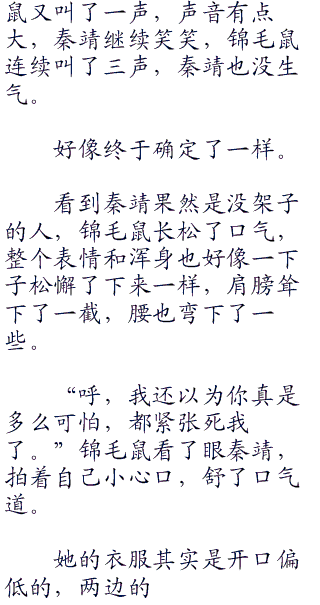 鼠又叫了一声，声音有点
大，秦靖继续笑笑，锦毛鼠
连续叫了三声，秦靖也没生
气。
好像终于确定了一样。
看到秦靖果然是没架子
的人，锦毛鼠长松了口气，
整个表情和浑身也好像一下
子松懈了下来一样，肩膀耸
下了一截，腰也弯下了一
些。
“呼，我还以为你真是
多么可怕，都紧张死我
了。”锦毛鼠看了眼秦靖，
拍着自己小心口，舒了口气
道。
她的衣服其实是开口偏
低的，两边的